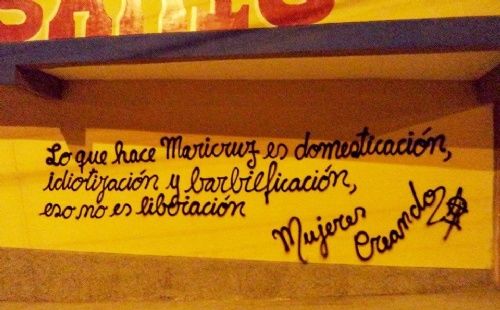 Lo que hace Maricruz es domesticación,
idiotización y barbieficación,
eso no es liberación
Mujeres
Creando